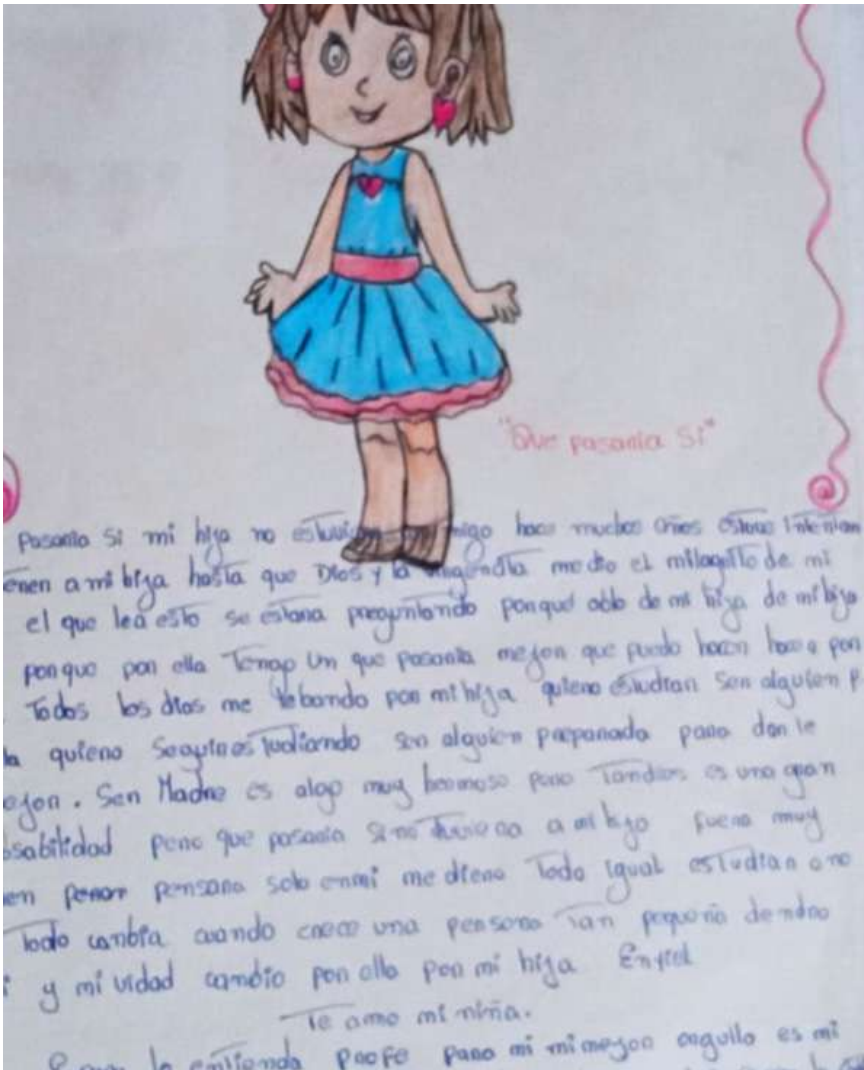 "Que pasaria Si"
Pasaria Si mi hija no hace muchos años
a mi hija hasta que Dios y la medio el milagrito de mi
el que lea esto se estara preguntando porque de mi hija de mi hija
porque por ella Tengo Un que pasaria mejor que puedo hacer por
Todos los dias me lebando por mi hija quiero estudiar Ser alguien
quiero Seguir estudiando ser alguien preparada para dar le
. Ser Madre es algo muy hermoso pero es una gran
pero que pasaria Si no a mi hija fuera muy
persona solo en mi me diera Todo igual estudiar o no
todo canbia cuando crece una persona Tan pequeña dendro
y mi vidad cambio por ella por mi hija
Te amo mi niña.
lo entienda profe para mi mi mejor orgullo es mi